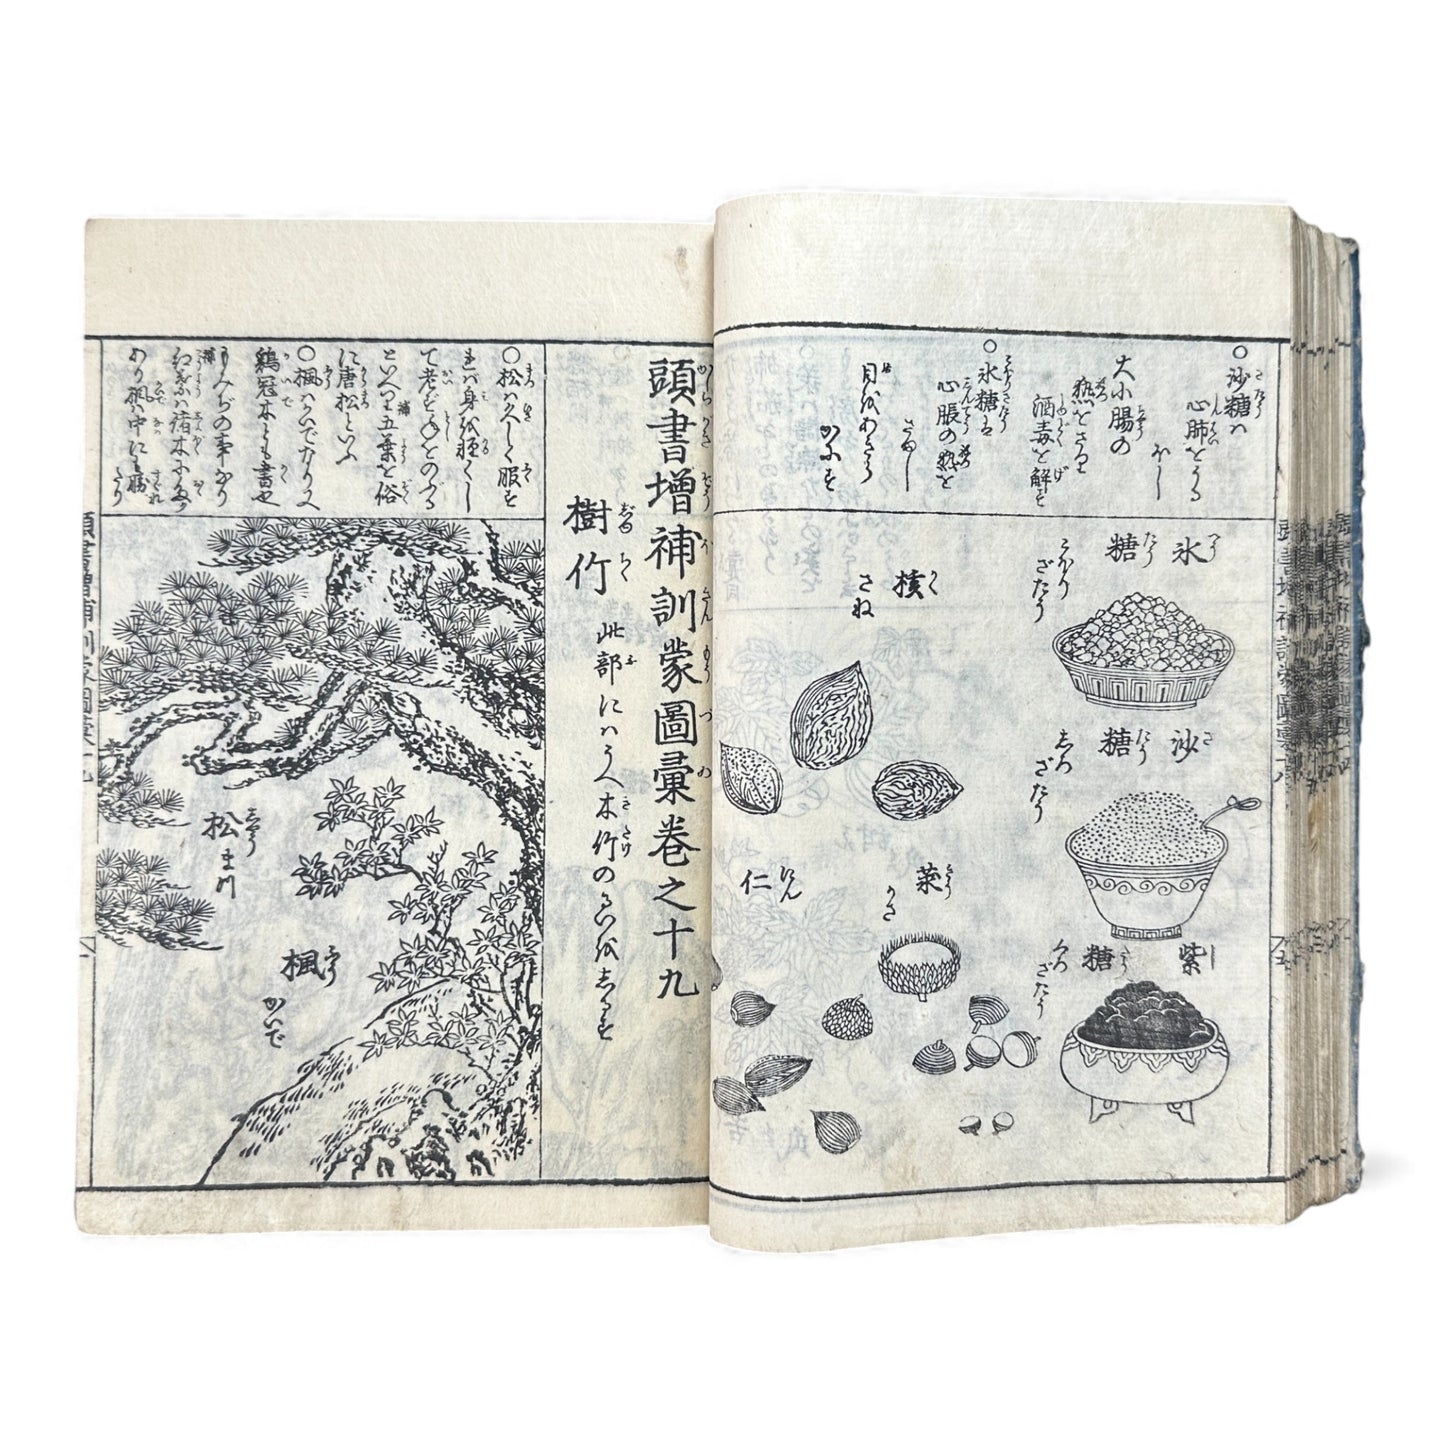 ○沙糖ハ
心肺をうる
ほし
大小腸の
熱をさり
酒毒を解す
○氷糖ハ
心脹の熱を
さまし
目をあきら
かにす
氷糖
こほりざたう
沙糖
しろざたう
紫糖
くろざたう
核
さね
梂
かさ
仁
にん
頭書増補訓蒙圖彙卷之十九
樹竹
此部にハうへ木竹のるいをしるす
○松ハ久しく服す
れバ身を軽くし
て老ず年をのぶる
といへり五葉を俗
に唐松といふ
○楓ハかいでなり又
鶏冠木とも書也
もみぢの事なり
松
まつ
楓
かいで
頭書増補訓蒙圖彙十九